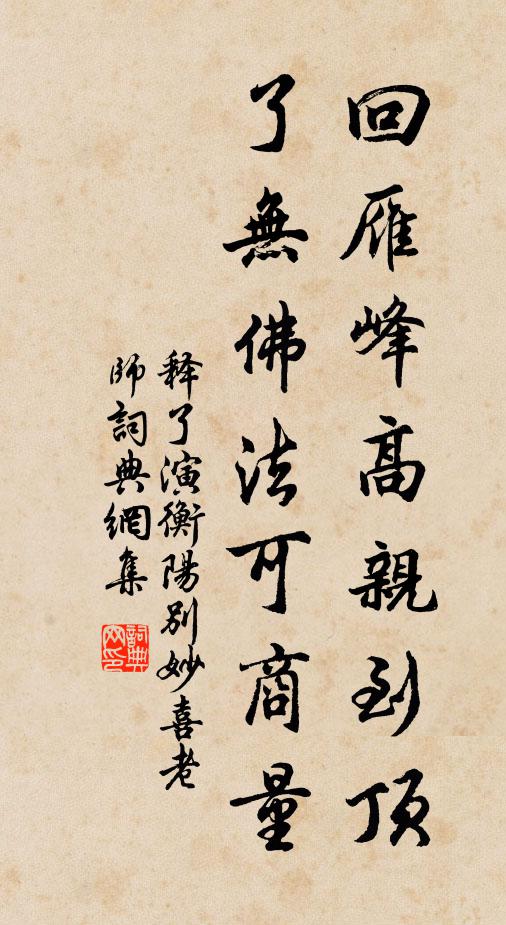 回雁峰高親到頂
了無佛法可商量
释了演衡陽别妙喜老
師詞典網集
詞典
网印